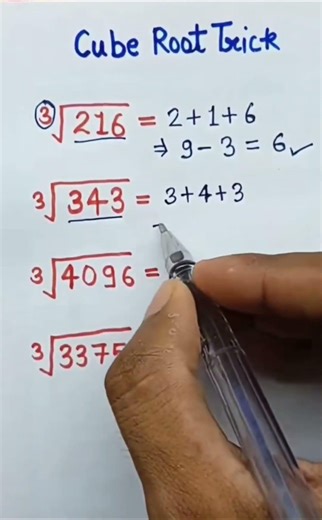 Cube Root Trick
³√216 = 2+1+6
⇒ 9-3 = 6 ✓
³√343 = 3+4+3
³√4096 =
³√3375